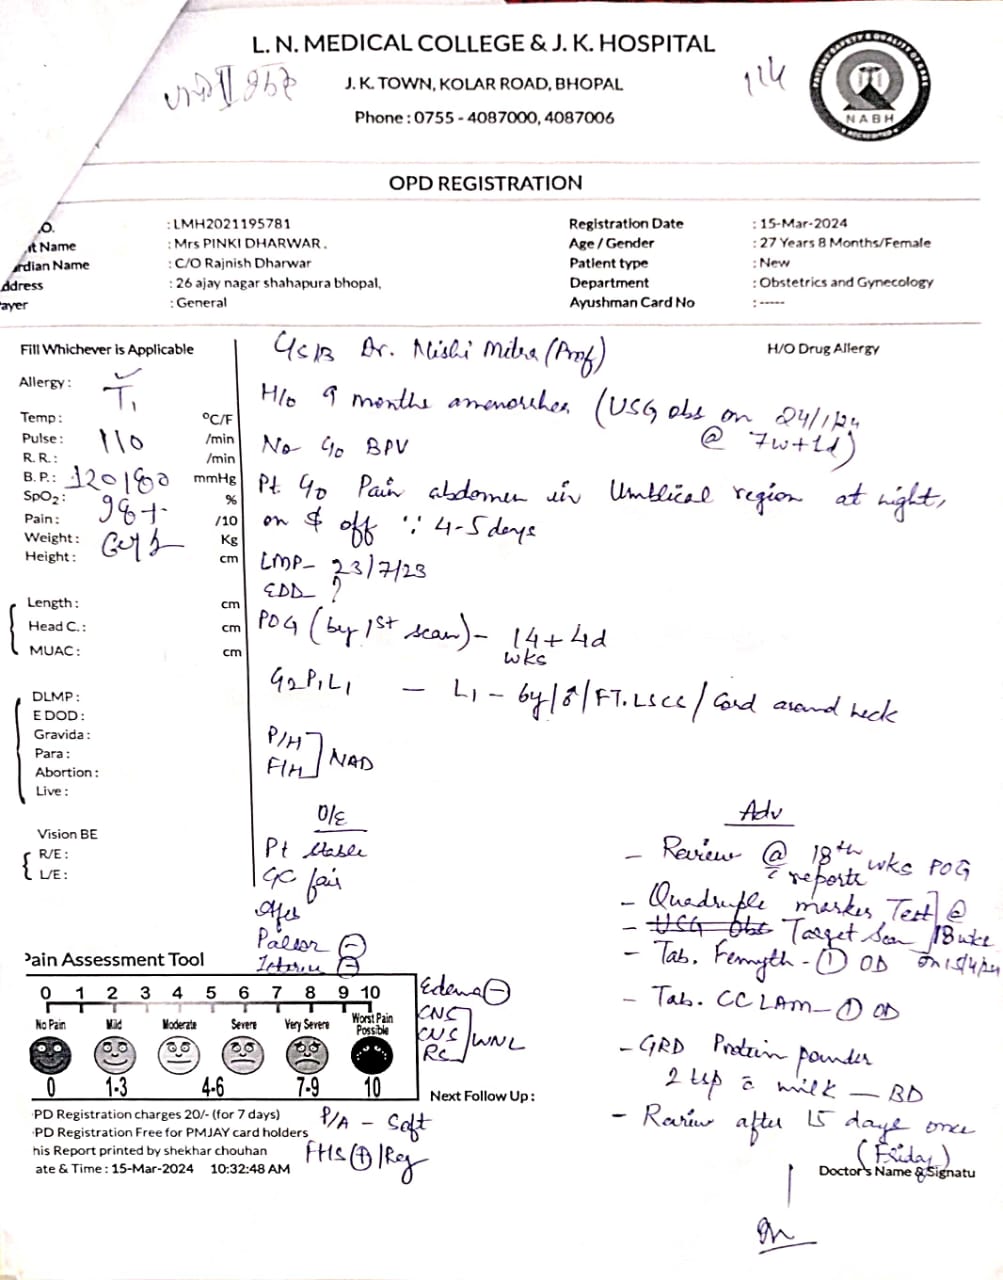 L. N. MEDICAL COLLEGE & J. K. HOSPITAL
J. K. TOWN, KOLAR ROAD, BHOPAL
Phone : 0755 - 4087000, 4087006
114
NABH
OPD REGISTRATION
O. : LMH2021195781
nt Name : Mrs PINKI DHARWAR .
rdian Name : C/O Rajnish Dharwar
ddress : 26 ajay nagar shahapura bhopal,
ayer : General
Registration Date : 15-Mar-2024
Age / Gender : 27 Years 8 Months/Female
Patient type : New
Department : Obstetrics and Gynecology
Ayushman Card No : -----
Fill Whichever is Applicable
Allergy : T1
Temp : °C/F
Pulse : 110 /min
R. R. : /min
B. P. : 120/80 mmHg
SpO2 : 98+ %
Pain : /10
Weight : Kg
Height : cm
Length : cm
Head C. : cm
MUAC : cm
DLMP :
E DOD :
Gravida :
Para :
Abortion :
Live :
Vision BE
R/E :
L/E :
H/O Drug Allergy
C/S/B Dr. Nishi Mitra (Prof)
H/o 9 months amenorrhea (USG obs on 24/1/24
@ 7w+1d)
No c/o BPV
Pt c/o Pain abdomen in Umblical region at night,
on $ off ∵ 4-5 days
LMP- 23/7/23
EDD- ?
POG (by 1st scan) - 14+4d
wks
G2P1L1 - L1 - 6y/♂/FT.LSCS/Cord around neck
P/H
F/H ] NAD
O/E
Pt stable
GC fair
Afeb
Pallor ⊖
Icterus ⊖
Edema ⊖
CNS
CVS
RS ] WNL
P/A - Soft
FHS ⊕/Reg
Adv
- Review @ 18th wks POG
c̄ reports
- Quadruple marker Test
- USG Obs Target Scan ] @ 18 wks
on 15/4/24
- Tab. - ① OD
- Tab. CCLAM - ① OD
- GRD Protein powder
2 tsp c̄ milk - BD
- Review after 15 days once
(Friday)
Pain Assessment Tool
0 1 2 3 4 5 6 7 8 9 10
No Pain Mild Moderate Severe Very Severe Worst Pain Possible
0 1-3 4-6 7-9 10
Next Follow Up :
PD Registration charges 20/- (for 7 days)
PD Registration Free for PMJAY card holders
his Report printed by shekhar chouhan
ate & Time : 15-Mar-2024 10:32:48 AM
Doctor's Name & Signatu